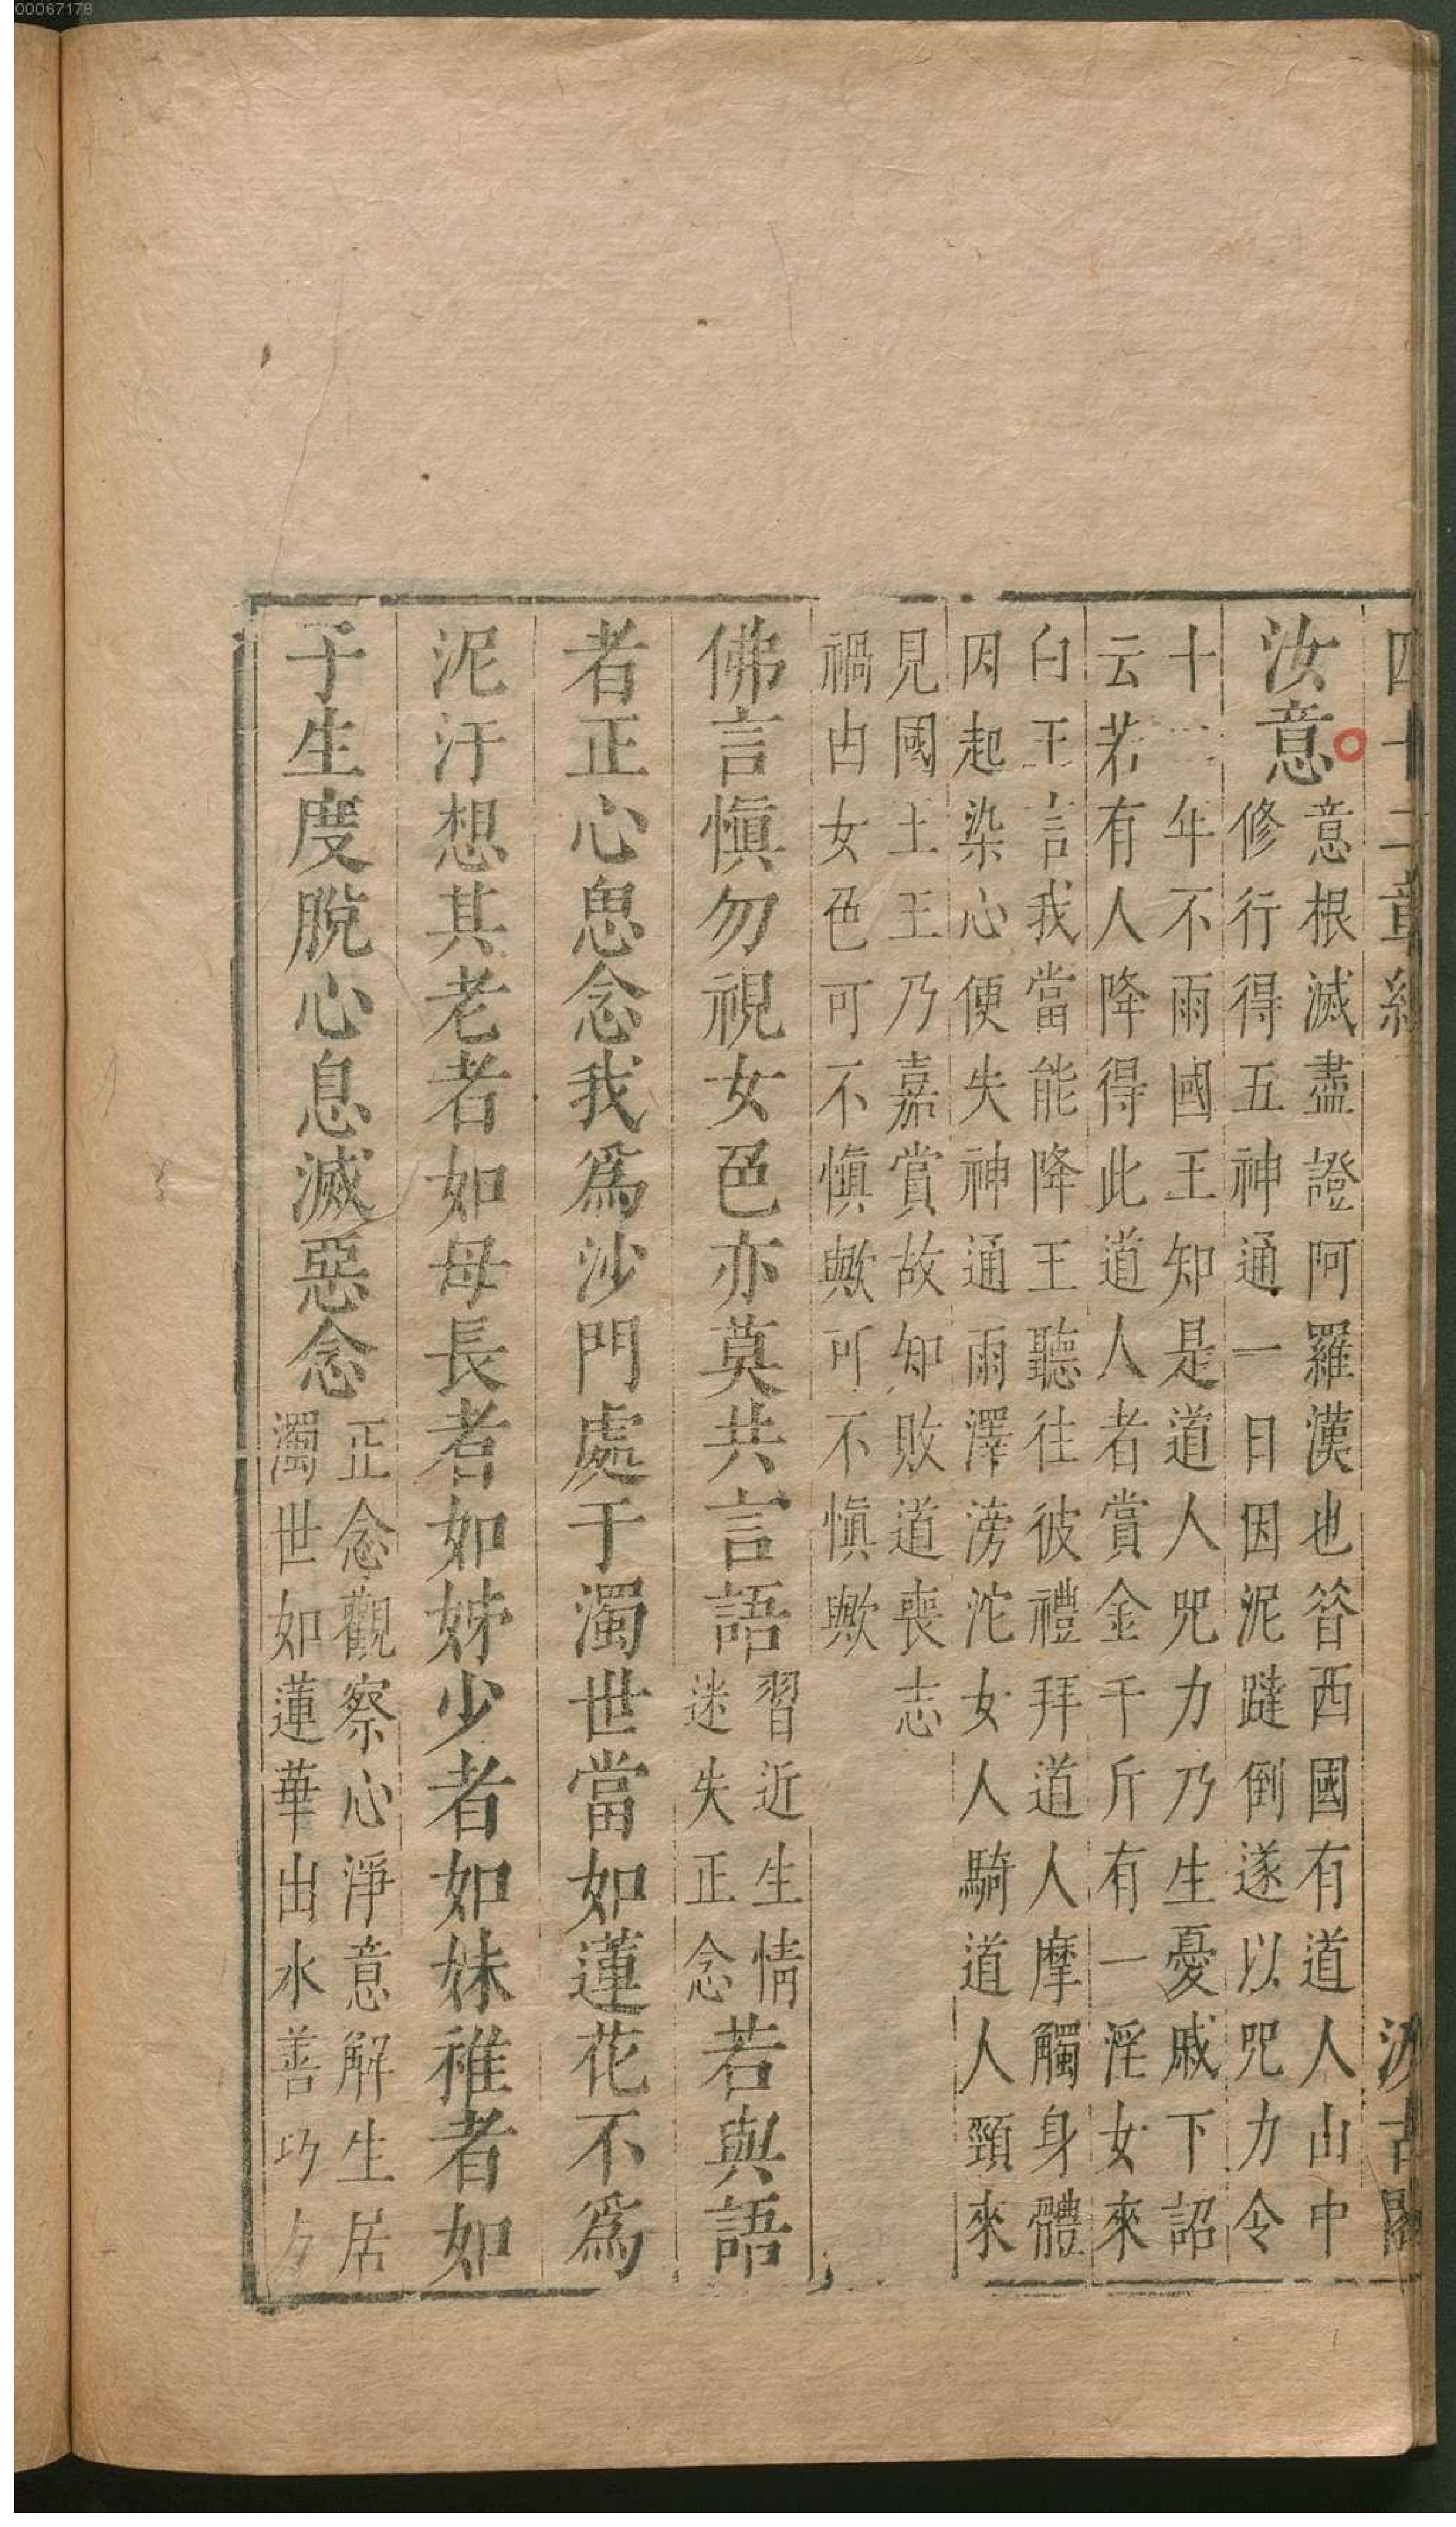 00067178
四十二章經 汲古閣
汝意
意根滅盡證阿羅漢也昝西國有道人山中
修行得五神通一日因泥躂倒遂以咒力令
十二年不雨國王知是道人咒力乃生憂戚下詔
云若有人降得此道人者賞金千斤有一淫女來
白王言我當能降王聽往彼禮拜道人摩觸身體
因起染心便失神通雨澤滂沱女人騎道人頸來
見國土王乃嘉賞故知敗道喪志
禍由女色可不慎歟可不慎歟
佛言慎勿視女色亦莫共言語
習近生情
迷失正念
若與語
者正心思念我為沙門處于濁世當如蓮花不為
泥汙想其老者如母長者如姊少者如妹稚者如
子生度脫心息滅惡念
正念觀察心淨意解生居
濁世如蓮華出水善巧方